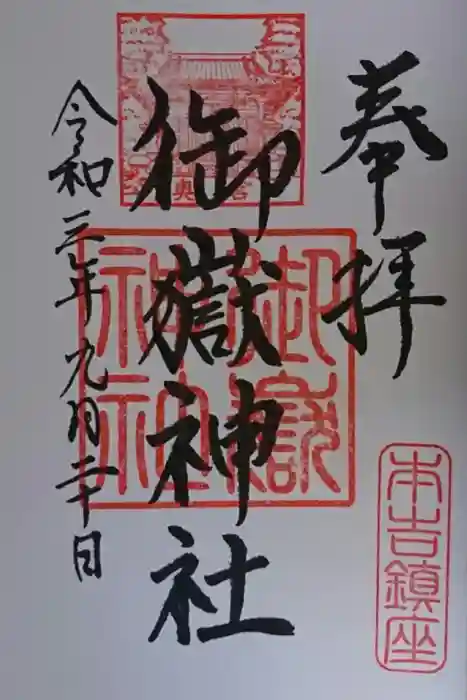 奉拝
本吉鎮座
御嶽神社
御嶽神社
令和三年九月二十日